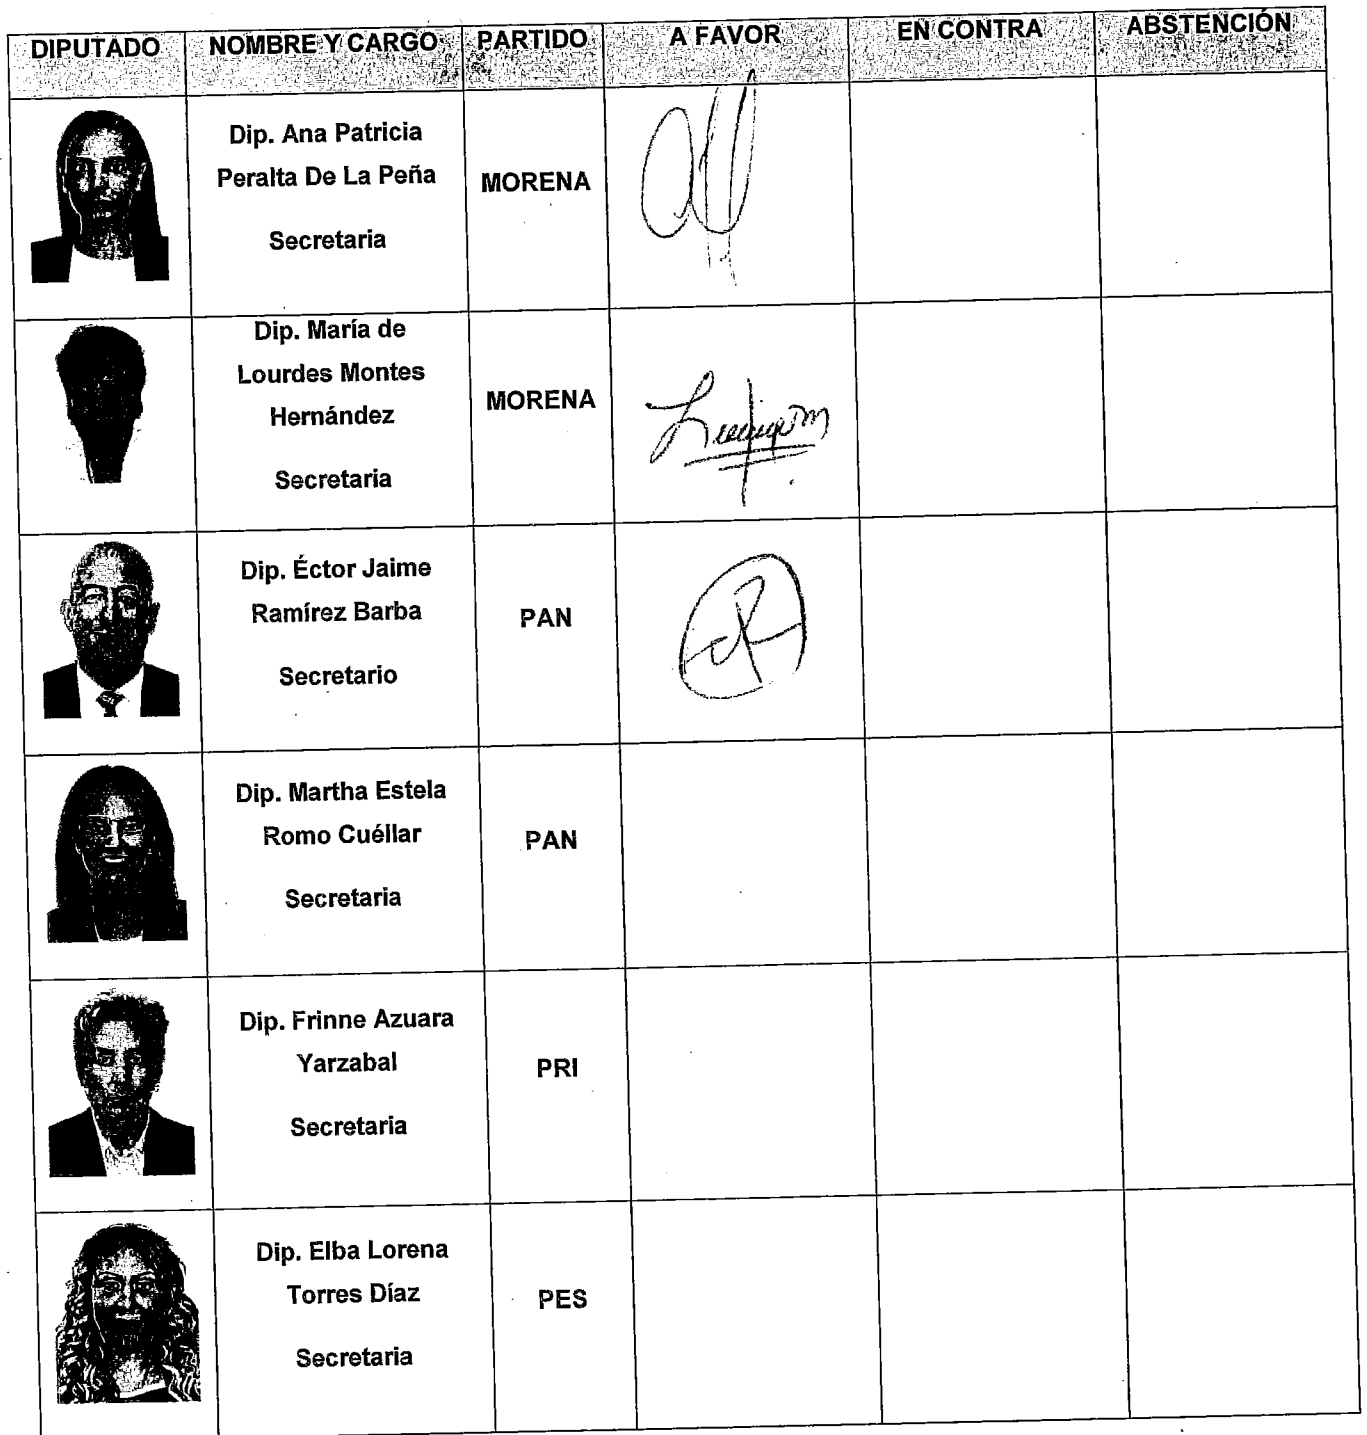 DIPUTADO NOMBRE Y CARGO PARTIDO A FAVOR EN CONTRA ABSTENCIÓN
Dip. Ana Patricia
Peralta De La Peña
Secretaria
MORENA
Dip. María de
Lourdes Montes
Hernández
Secretaria
MORENA
Dip. Éctor Jaime
Ramírez Barba
Secretario
PAN
Dip. Martha Estela
Romo Cuéllar
Secretaria
PAN
Dip. Frinne Azuara
Yarzabal
Secretaria
PRI
Dip. Elba Lorena
Torres Díaz
Secretaria
PES